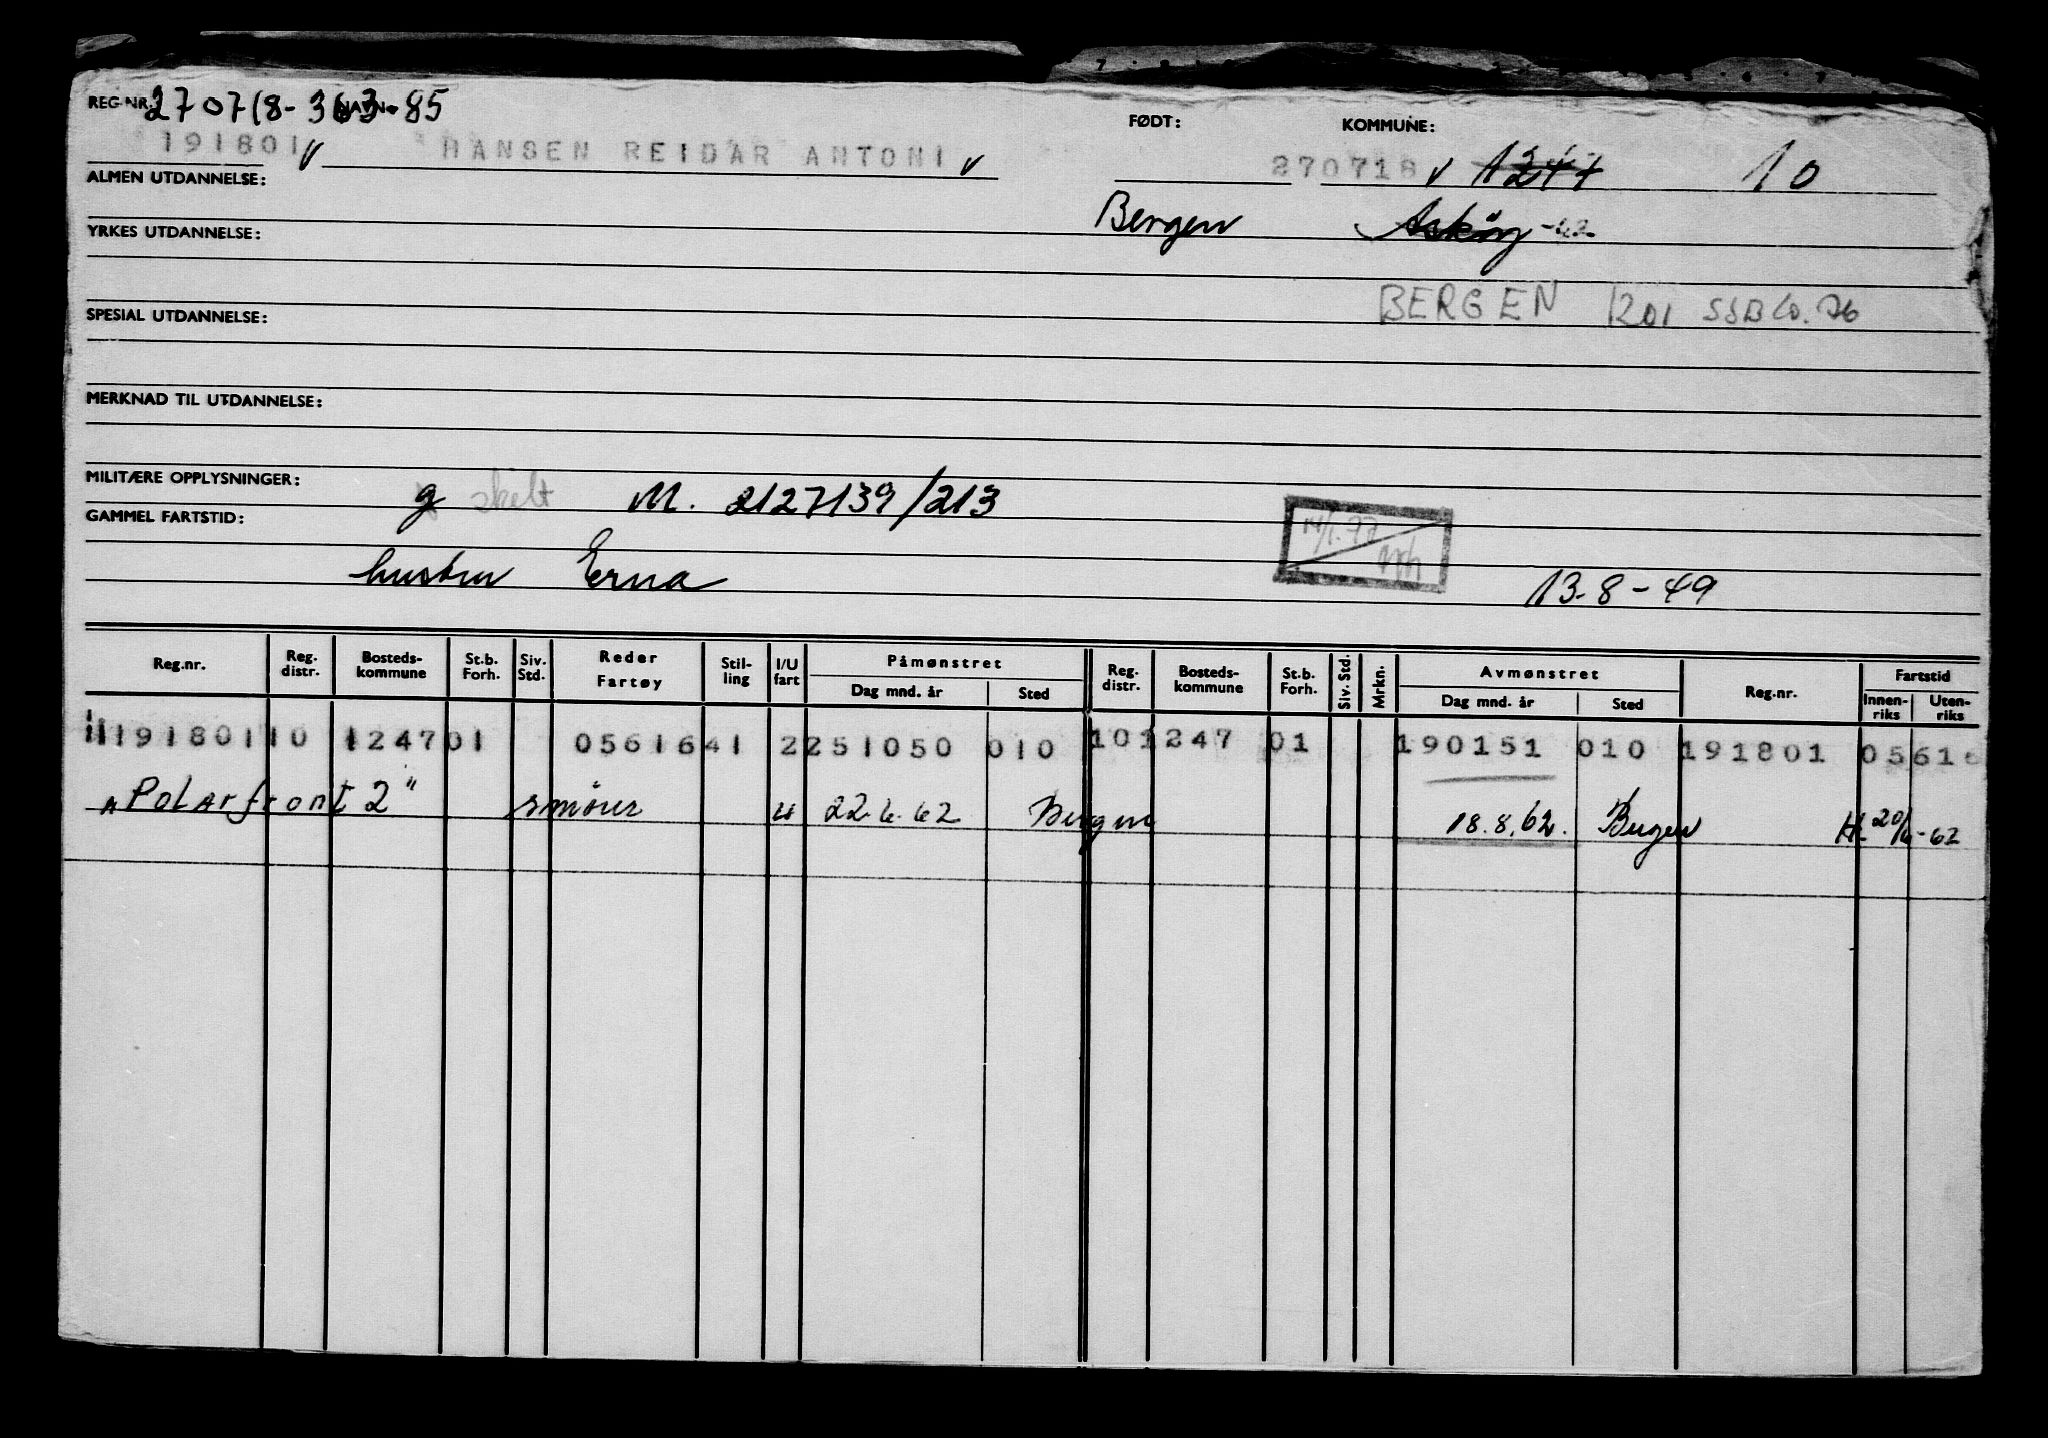 REG.NR. 270718-363-85 NAVN FØDT: KOMMUNE:
191801 v HANSEN REIDAR ANTONI v 270718 v 1247 10
ALMEN UTDANNELSE:
Bergen Askøy -62
YRKES UTDANNELSE:
BERGEN 1201 SSB Co. 76
SPESIAL UTDANNELSE:
MERKNAD TIL UTDANNELSE:
MILITÆRE OPPLYSNINGER:
g skilt M. 2127139/213
GAMMEL FARTSTID:
14/1.77
hustru Erna 13-8-49
Reg.nr. Reg. distr. Bosteds-kommune St.b. Forh. Siv. Std. Reder Fartøy Stil-ling I/U fart Påmønstret Dag mnd. år Sted Reg. distr. Bosteds-kommune St.b. Forh. Siv. Std. Mrkn. Avmønstret Dag mnd. år Sted Reg.nr. Fartstid Innen-riks Uten-riks
191801 10 1247 01 0561641 2 251050 010 10 1247 01 190151 010 191801 05616
"Polarfront 2" smører u 22.6.62 Bergen 18.8.62. Bergen HL 20/6-62